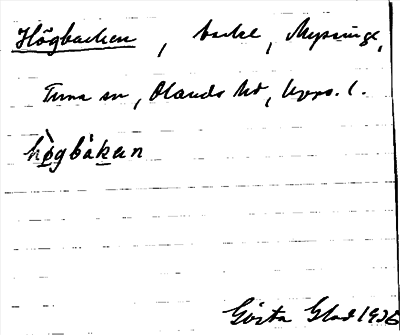 Högbacken, backe, Mysinge,
Tuna sn, Olands hd, Upps. l.
hø̀gbàkan
Gösta Glad 1936